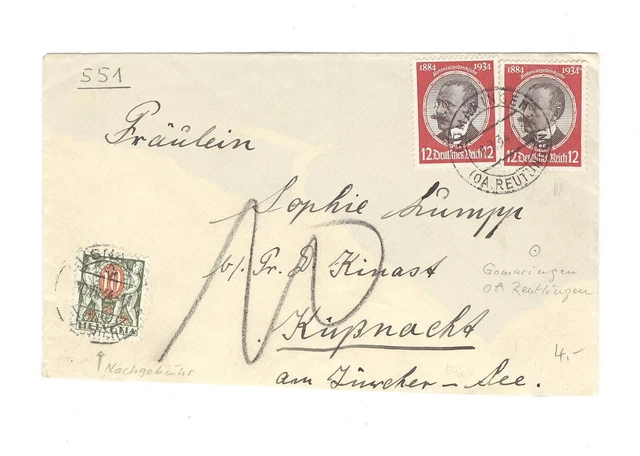 551
1884 1934
Kolonialgedenkjahr
12 Deutsches Reich 12
1884 1934
Kolonialgedenkjahr
12 Deutsches Reich 12
GOMARINGEN
(OA. REUTLINGEN)
Fräulein
Sophie Lumpp
b/. Pr. D Kinast
Küßnacht
am Zürcher-See.
Gomaringen
OA Reutlingen
4.-
HELVETIA
Nachgebühr